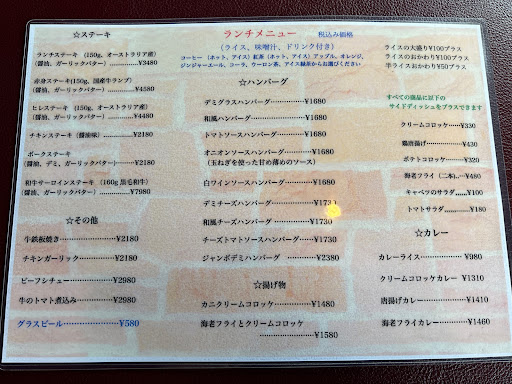 ☆ステーキ
ランチステーキ (150g、オーストラリア産)
(醤油、ガーリックバター)………¥3480
赤身ステーキ(150g、国産牛ランプ)
(醤油、ガーリックバター)…………¥4580
ヒレステーキ (150g、オーストラリア産)
(醤油、ガーリックバター)…………¥4480
チキンステーキ (醤油味)………¥2180
ポークステーキ
(醤油、デミ、ガーリックバター)……¥2180
和牛サーロインステーキ (160g 黒毛和牛)
(醤油、ガーリックバター)………¥7980
☆その他
牛鉄板焼き…………¥2180
チキンガーリック………¥2180
ビーフシチュー………¥2980
牛のトマト煮込み………¥2980
グラスビール………¥580
ランチメニュー 税込み価格
(ライス、味噌汁、ドリンク付き)
コーヒー(ホット、アイス)紅茶(ホット、アイス)アップル、オレンジ、
ジンジャーエール、コーラ、ウーロン茶、アイス緑茶からお選びください
☆ハンバーグ
デミグラスハンバーグ………¥1680
和風ハンバーグ…………¥1680
トマトソースハンバーグ………¥1680
オニオンソースハンバーグ…………¥1680
(玉ねぎを使った甘め薄めのソース)
白ワインソースハンバーグ………¥1680
デミチーズハンバーグ………¥1730
和風チーズハンバーグ………¥1730
チーズトマトソースハンバーグ………¥1730
ジャンボデミハンバーグ………¥2380
☆揚げ物
カニクリームコロッケ…………¥1480
海老フライとクリームコロッケ
…………¥1580
ライスの大盛り¥100プラス
ライスのおかわり¥100プラス
半ライスおかわり¥50プラス
すべての商品に以下の
サイドディッシュをプラスできます
クリームコロッケ………¥330
鶏唐揚げ…………¥430
ポテトコロッケ………¥320
海老フライ(二本)……¥480
キャベツのサラダ……¥100
トマトサラダ………¥180
☆カレー
カレーライス………¥980
クリームコロッケカレー ¥1310
唐揚げカレー………¥1410
海老フライカレー………¥1460